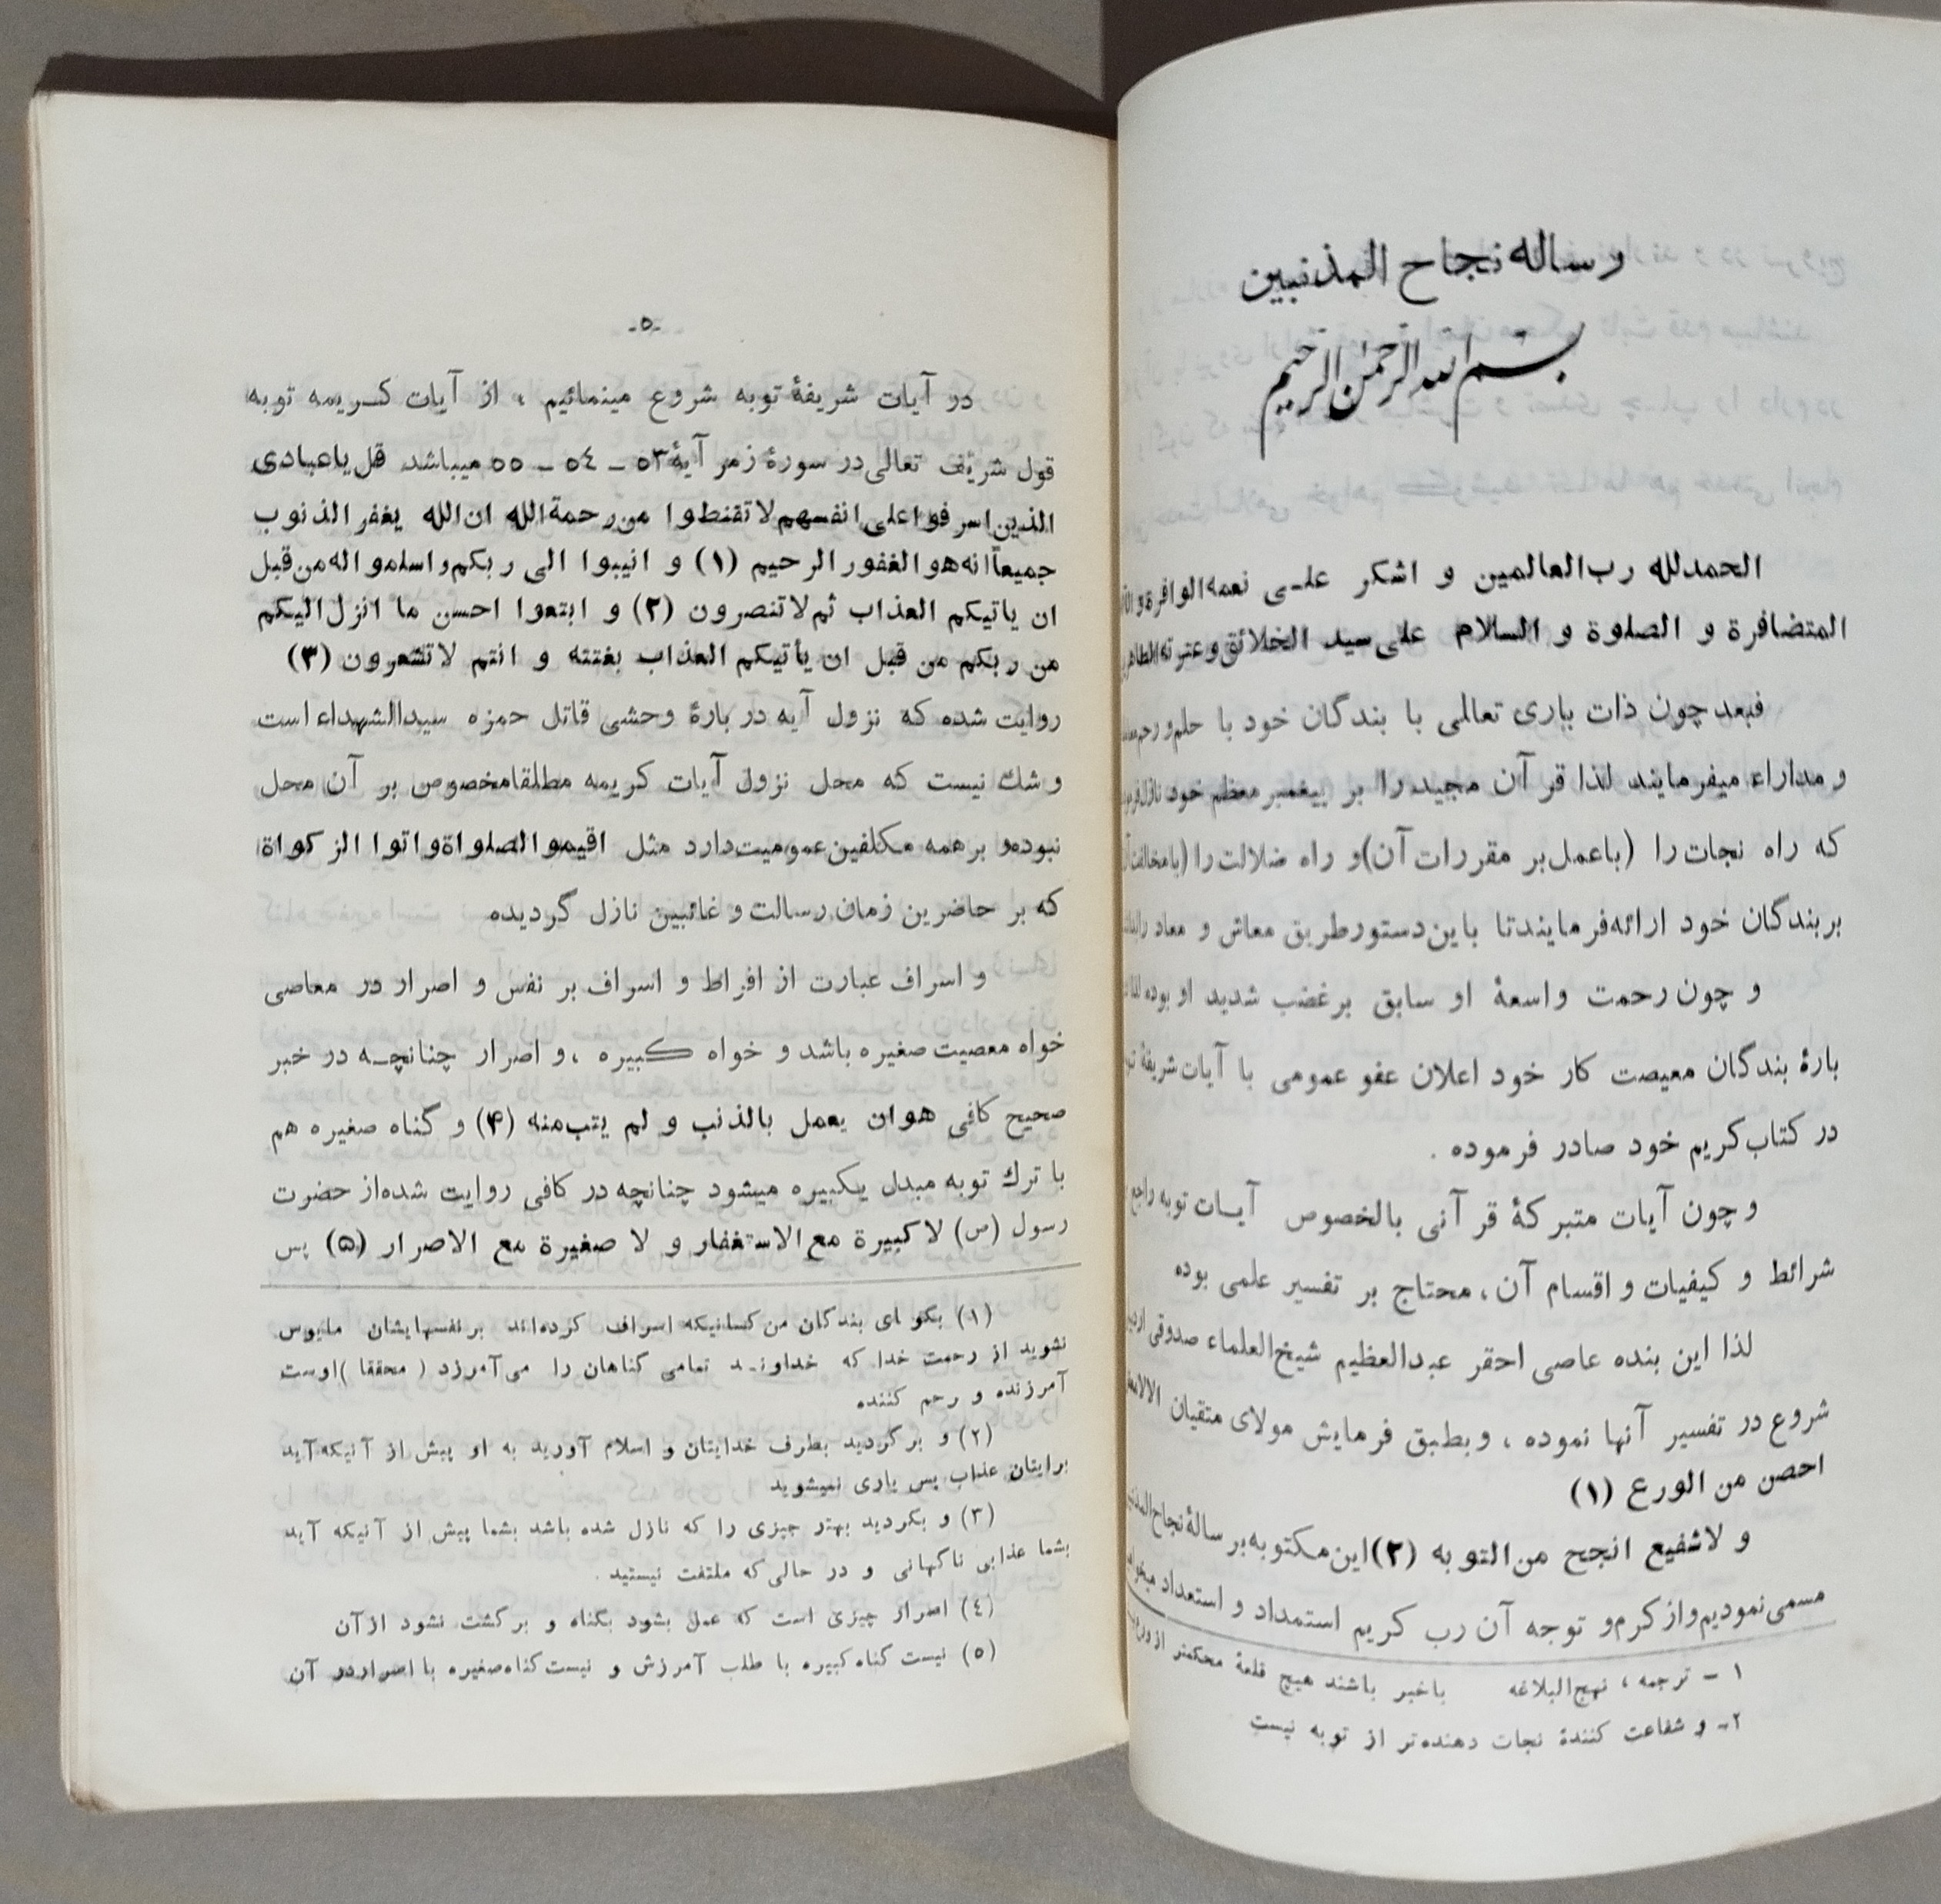 رساله نجاح المذنبین
بسم الله الرحمن الرحیم
الحمدلله رب‌العالمین و اشکر علـی نعمه‌الوافرة
المتضافرة و الصلوة و السلام علی سید الخلائق و عترته
فبعد چون ذات باری تعالی با بندگان خود با حلم و رحم
و مداراء میفرمایند لذا قرآن مجید را بر پیغمبر معظم خود
که راه نجات را (باعمل بر مقررات آن) و راه ضلالت را
بر بندگان خود ارائه فرمایند تا باین دستور طریق معاش و معاد
و چون رحمت واسعهٔ او سابق بر غضب شدید او بوده
بارهٔ بندگان معیصت کار خود اعلان عفو عمومی با آیات شریفهٔ
در کتاب کریم خود صادر فرموده .
و چون آیات متبرکهٔ قرآنی بالخصوص آیـات توبه راجع
شرائط و کیفیات و اقسام آن ، محتاج بر تفسیر علمی بوده
لذا این بنده عاصی احقر عبدالعظیم شیخ‌العلماء صدوقی
شروع در تفسیر آنها نموده ، و بطبق فرمایش مولای متقیان
احصن من الورع (۱)
و لاشفیع انجح من التوبه (۲) این مکتوبه بر سالهٔ نجاح
مسمی نمودیم و از کرم و توجه آن رب کریم استمداد و استعداد
۱ – ترجمه ، نهج‌البلاغه باخبر باشند هیچ قلعهٔ محکمتر از
۲- و شفاعت کنندهٔ نجات دهنده‌تر از توبه نیست
-۵-
در آیات شریفهٔ توبه شروع مینمائیم ، از آیات کـریمه توبه
قول شریف تعالی در سورهٔ زمر آیهٔ ۵۳ – ۵٤ – ۵۵ میباشد قل یاعبادی
الذین اسرفوا علی انفسهم لاتقنطوا من رحمة الله ان الله یغفر الذنوب
جمیعاً انه هو الغفور الرحیم (۱) و انیبوا الی ربکم و اسلموا له من قبل
ان یاتیکم العذاب ثم لاتنصرون (۲) و ابتعوا احسن ما انزل الیکم
من ربکم من قبل ان یأتیکم العذاب بغتته و انتم لاتشعرون (۳)
روایت شده که نزول آیه در بارهٔ وحشی قاتل حمزه سیدالشهداء است
و شك نیست که محل نزول آیات کریمه مطلقا مخصوص بر آن محل
نبوده و بر همه مکلفین عمومیت دارد مثل اقیموالصلواة و اتوا الزکواة
که بر حاضرین زمان رسالت و غائبین نازل گردیده
و اسراف عبارت از افراط و اسراف بر نفس و اصرار در معاصی
خواه معصیت صغیره باشد و خواه کبیره ، و اصرار چنانچـه در خبر
صحیح کافی هو ان یعمل بالذنب و لم یتب منه (۴) و گناه صغیره هم
با ترك توبه مبدل یکبیره میشود چنانچه در کافی روایت شده از حضرت
رسول (ص) لاکبیرة مع الاستغفار و لا صغیرة مع الاصرار (۵) پس
(۱) بگو ای بندگان من کسانیکه اسراف کرده‌اند بر نفسهایشان مایوس
نشوید از رحمت خدا که خداونـد تمامی گناهان را می‌آمرزد ( محققا ) اوست
آمرزنده و رحم کننده
(۲) و برگردید بطرف خدایتان و اسلام آورید به او پیش از آنیکه آید
برایتان عذاب پس یاری نمیشوید
(۳) و بگردید بهتر چیزی را که نازل شده باشد بشما پیش از آنیکه آید
بشما عذابی ناگهانی و در حالی که ملتفت نیستید .
(٤) اصرار چیزی است که عمل بشود بگناه و برگشت نشود از آن
(۵) نیست گناه کبیره با طلب آمرزش و نیست گناه صغیره با اصرار در آن